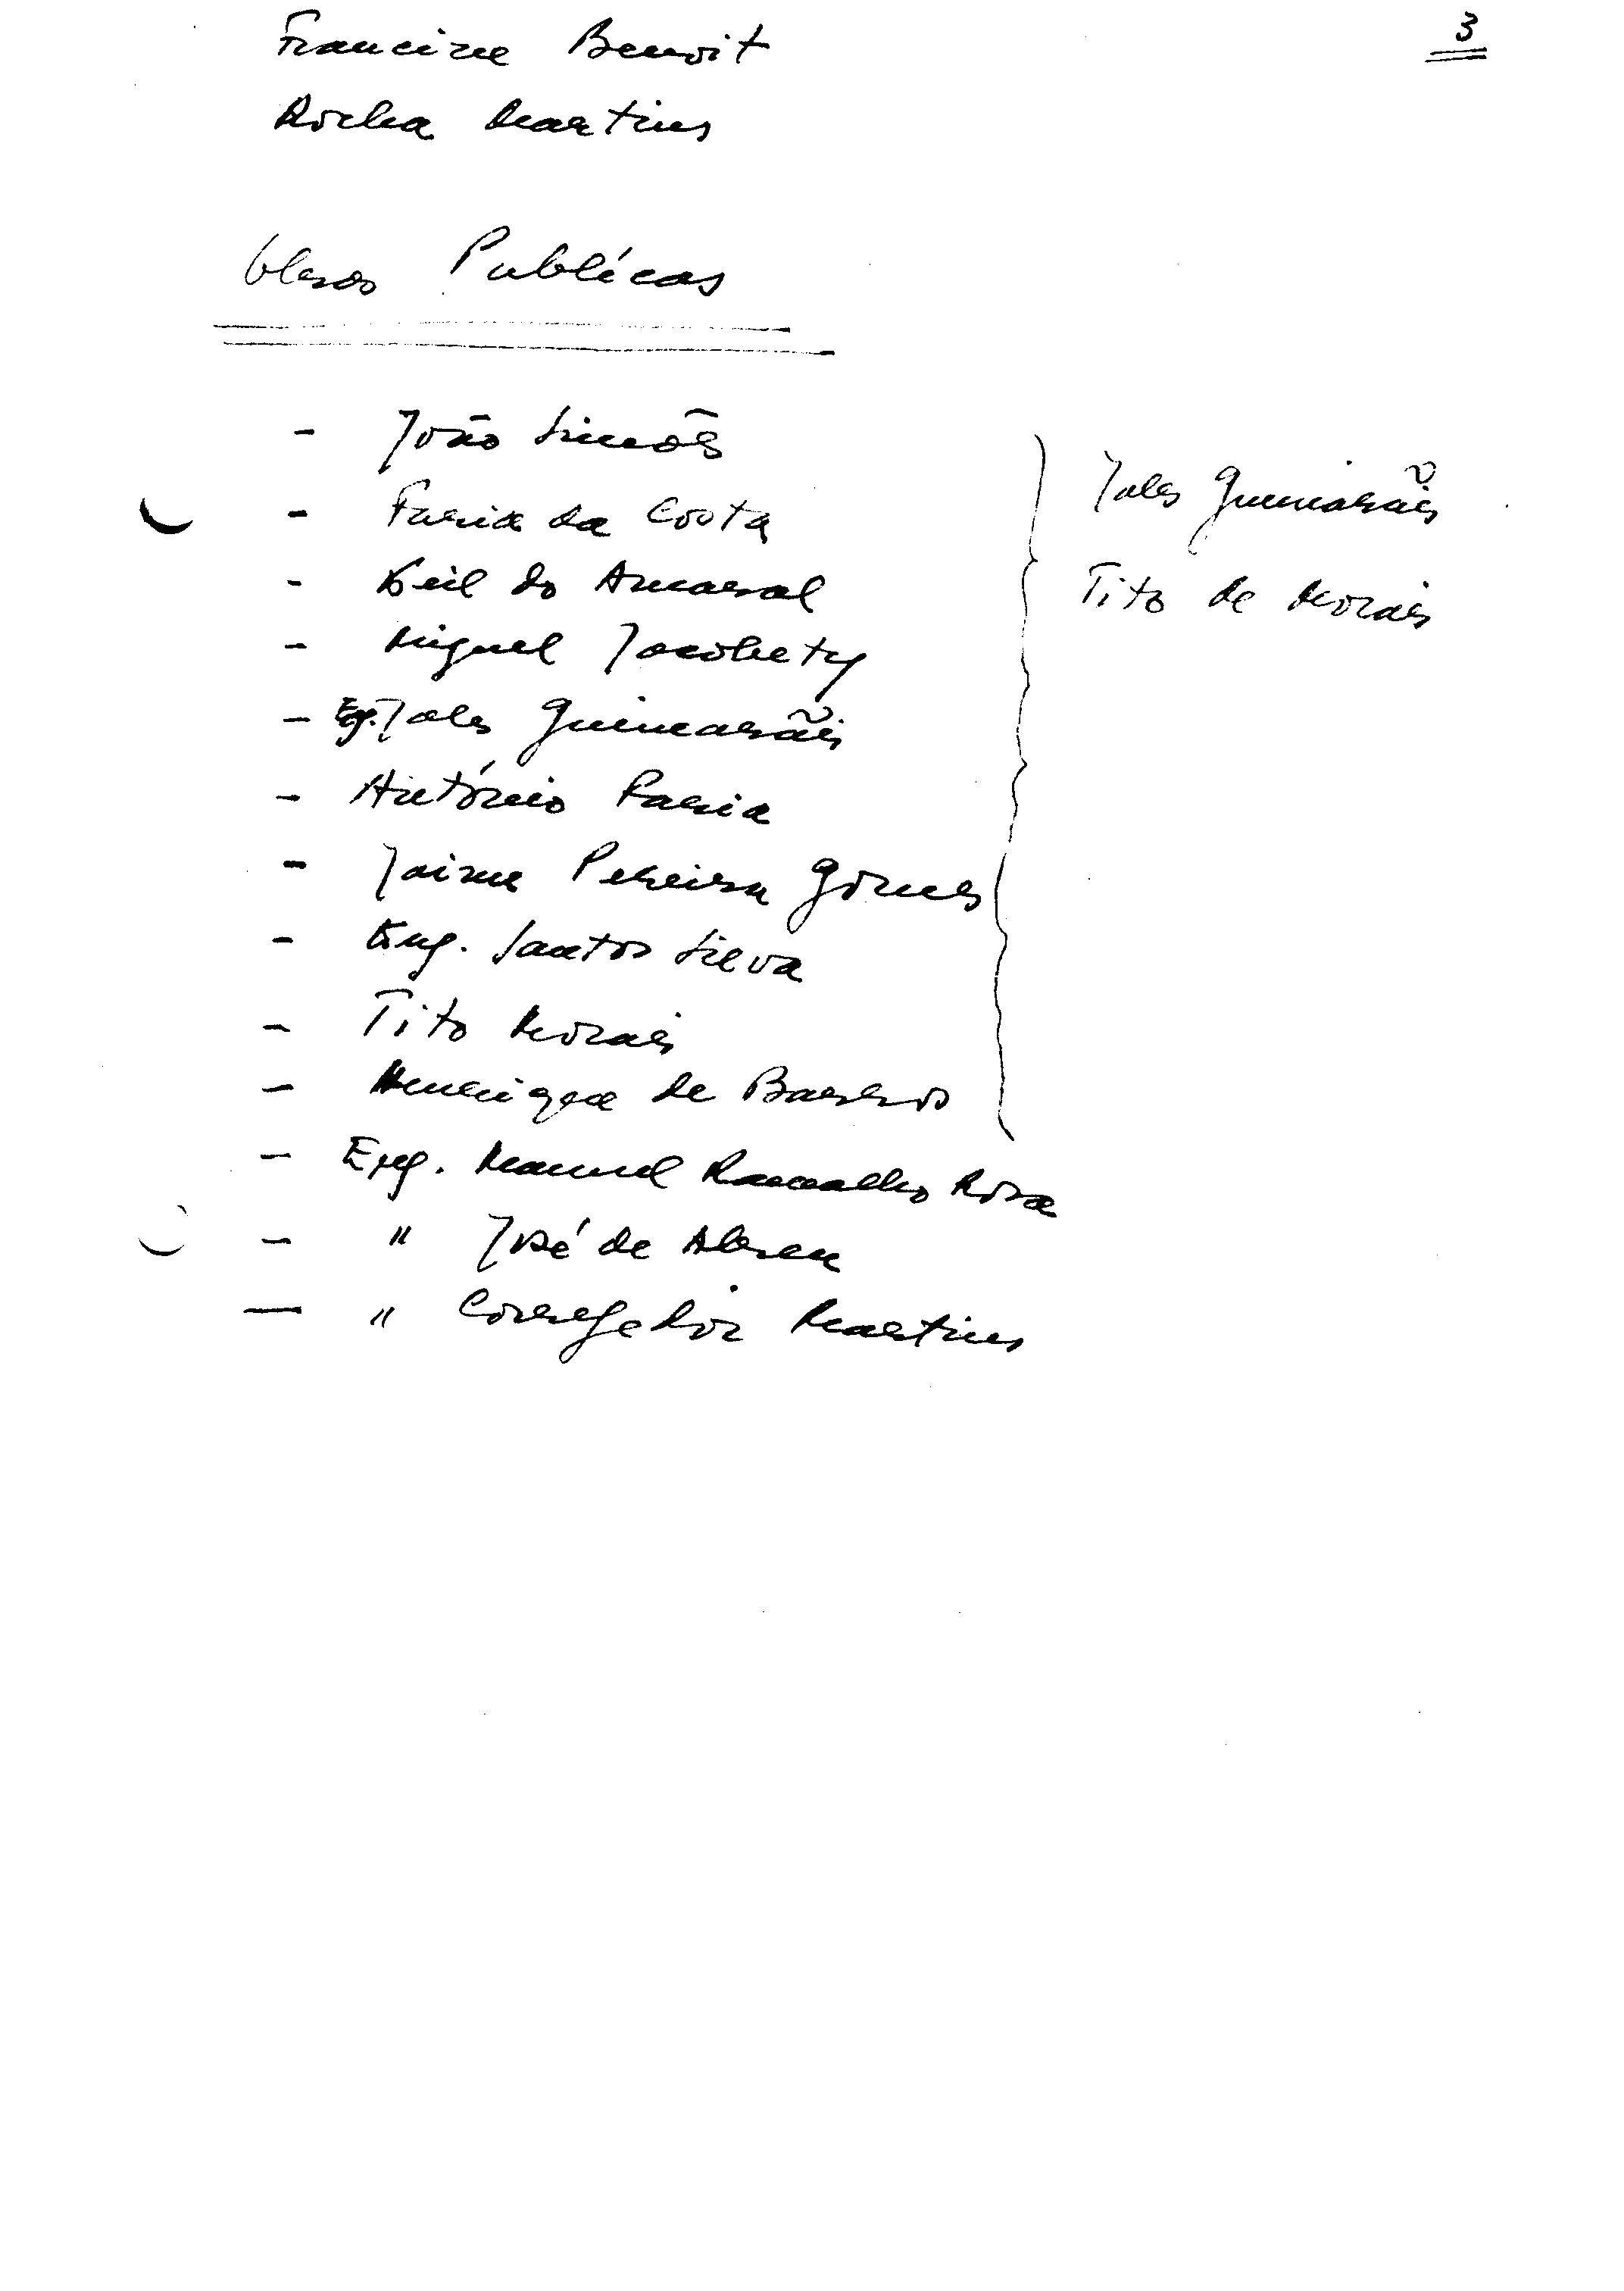 3
Francine Benoit
Rocha Martins
Obras Públicas
- João Simões
- Faria da Costa
- Keil do Amaral
- Miguel Jacobety
- Eg. Jales Guimarães
- António Faria
- Jaime Pereira Gomes
- Eng. Santos Silva
- Tito Morais
- Henrique de Barros
- Eng. Manuel Ramalho Rosa
- " José de Abreu
- " Corregedor Martins
Jales Guimarãis
Tito de Morais